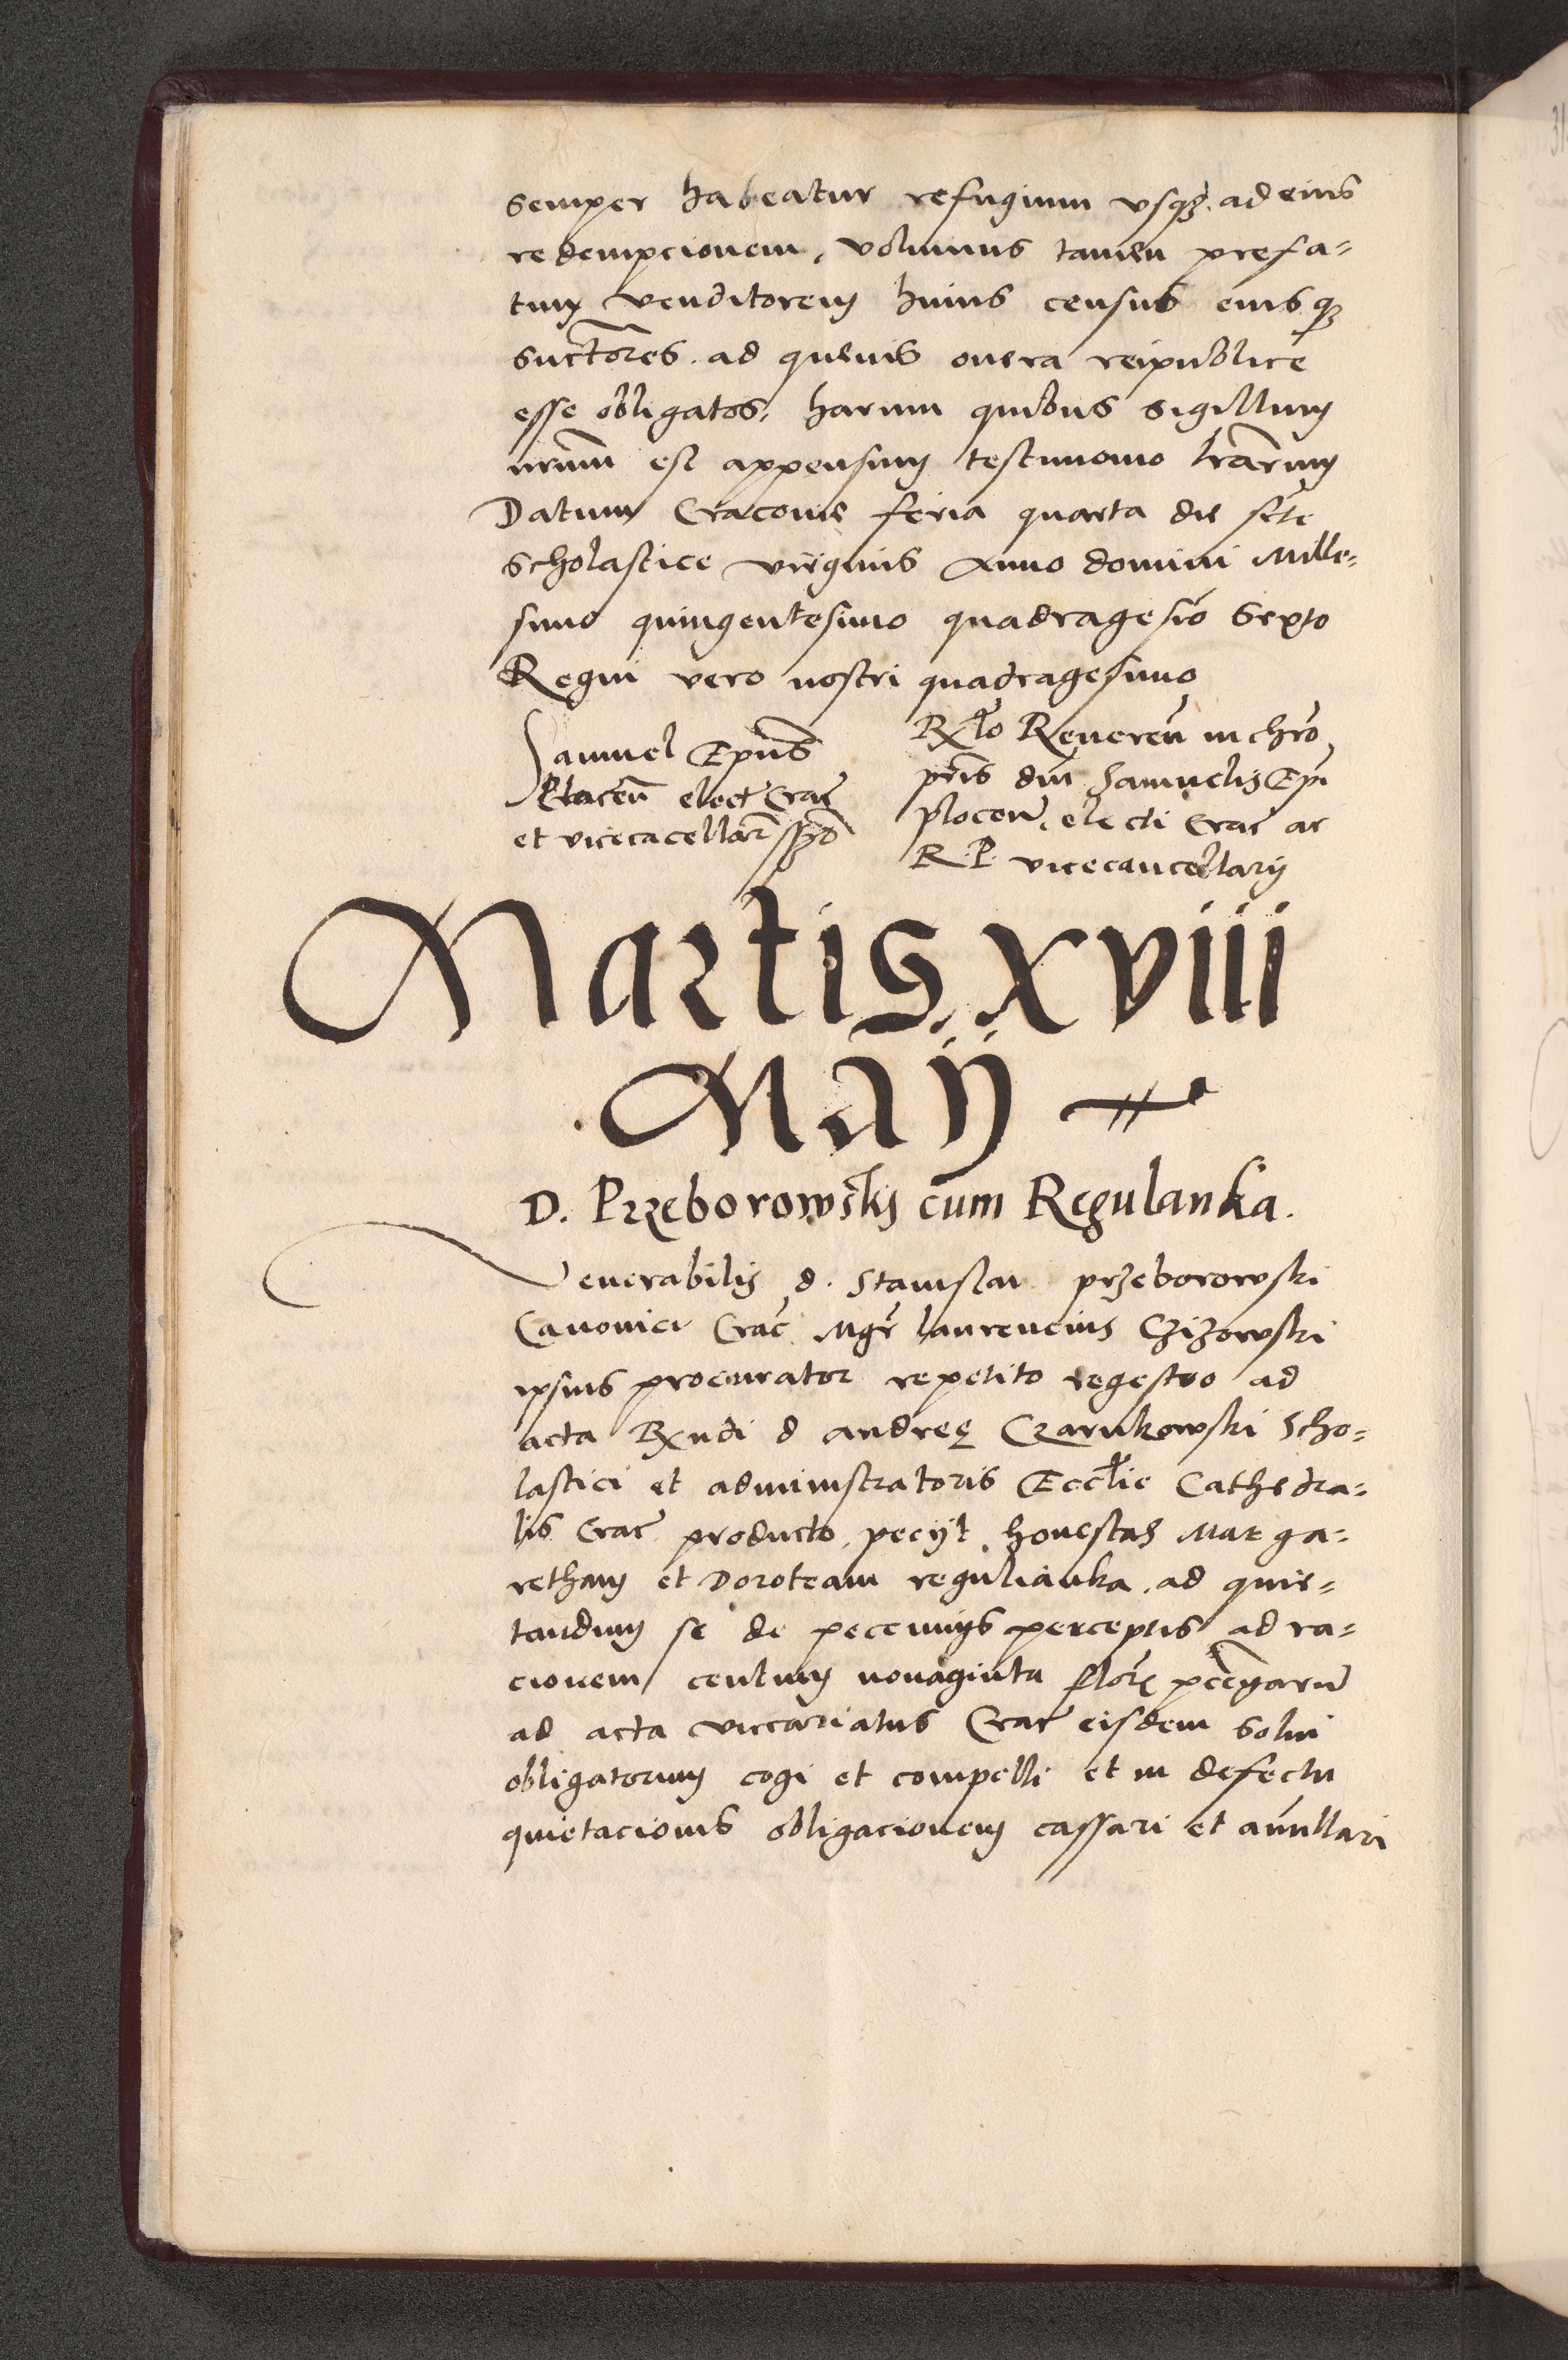 semper habeatur refugium vsqz ad eius
redempcionem, volumus tamen prefa=
tum venditorem huius census eiusqz
suctores ad queuis onera reipublice
esse obligatos, harum quibus sigillum
nrum est appensum testimonio lrarum
Datum Cracovie feria quarta die scte
Scholastice virginis Anno domini Mille=
simo quingentesimo quadragesio sexto
Regni vero nostri quadragesimo
Samuel Epus
Plocen elect Crac
et vicecacellar sszt
Rlo Reueren in chro
pris dni Samuelis Epi
plocen, electi Crac ac
R. P. vicecancellarij
Martis xviii
Maij
D. Przeborowskj cum Regulanka.
Venerabilis d. Stanislai przeborowski
Canonici Crac Mgr laurencius Czizowski
ipsius procurator repetito regestro ad
acta Rxndi d andreę Czarnkowski Scho=
lastici et administratoris Ecclie Cathedra=
lis Crac producto, pecijt honestas Marga=
retham et Doroteam regulianka ad quie=
tandum se de pecuniis perceptis ad ra=
cionem centum nonaginta flor pecuniarum
ad acta viccariatus Crac eisdem solui
obligatorum cogi et compelli et in defectu
quietacionis obligacionem cassari et anullari